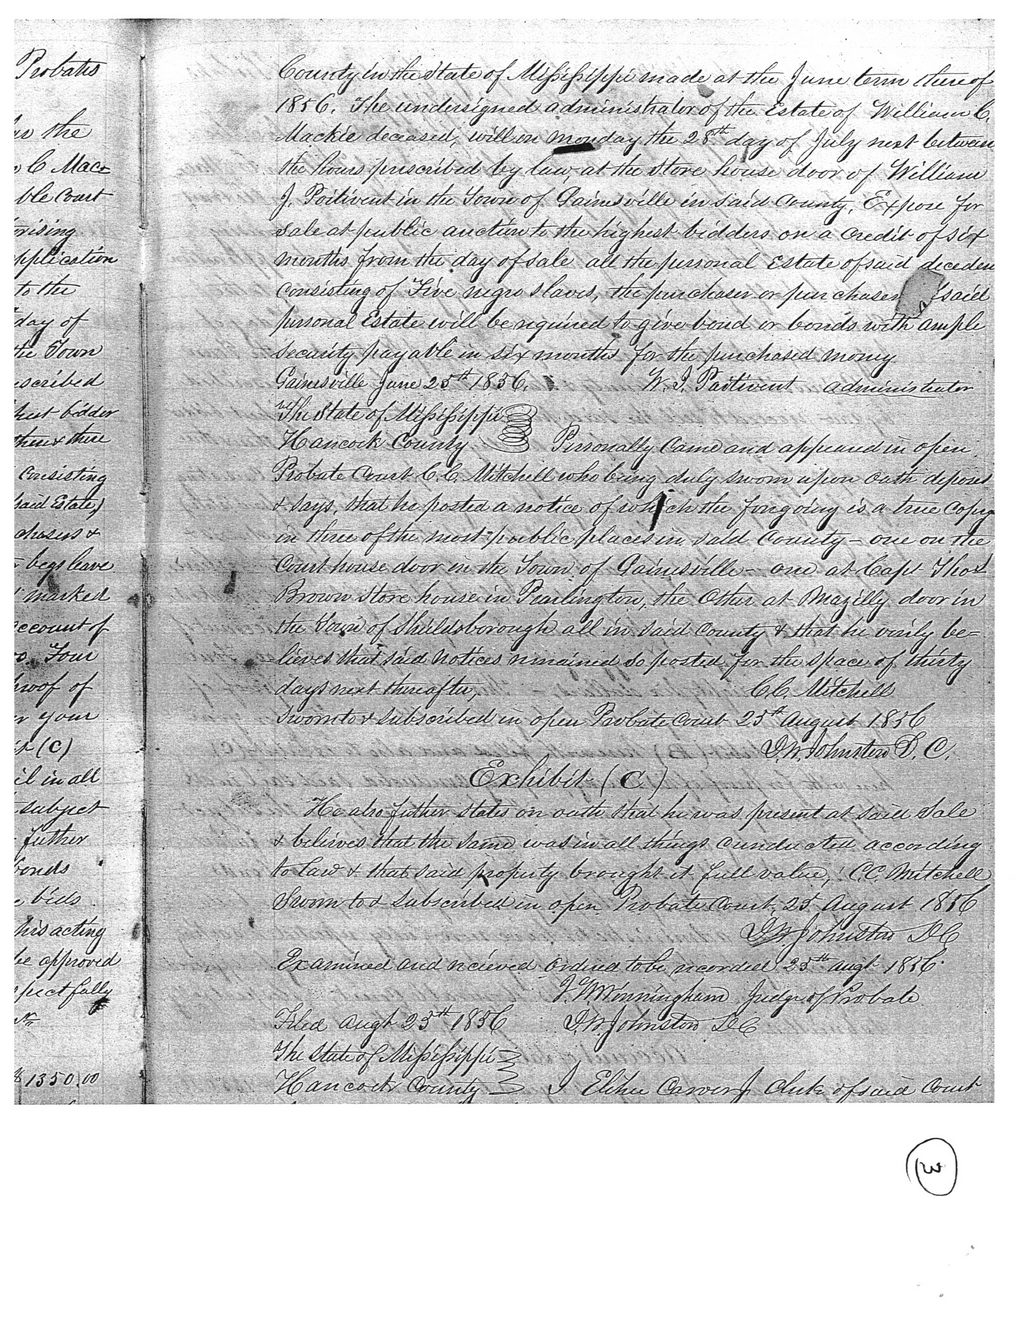 Probates
as the
C Mac=
ble court
rising
pplication
to the
day of
the Town
escribed
hest bidder
there & there
consisting
said Estate)
chasers &
begs leave
marked
account of
Four
proof of
er your
it (C)
il in all
subject
futher
bonds
bids
his acting
be approved
spectfully
$1350.00
County in the State of Mississippi made at the June term there of
1856. The undersigned administrator of the Estate of William C.
Mackie deceased, will on Monday the 28th day of July next between
the hours prescribed by law at the store house door of William
J. Poitivent in the Town of Gainsville in said County, Expose for
sale at public auction to the highest bidders on a credit of six
months from the day of sale all the personal Estate of said deceden
consisting of Five negro slaves, the purchaser or purchasers of said
personal Estate will be required to give bond or bonds with ample
security payable in six months for the purchased money
Gainsville June 25th 1856. W. J. Poitivent administrator
The State of Mississippi
Hancock County Personally Came and appeared in open
Probate Court C. C. Mitchell who being duly sworn upon oath deposes
& says, that he posted a notice of which the forgoing is a true Copy
in three of the most public places in said County - one on the
Court house door in the Town of Gainsville - one at Capt Thos
Brown Store house in Pearlington, the Other at Mazilly door in
the Town of Sheildsborough all in said County & that he verily be=
lieves that said notices remained so posted for the space of thirty
days next thereafter, C C Mitchell
Sworn to & subscribed in open Probate Court 25th August 1856
J. W. Johnston D. C.
Exhibit (C)
He also futher states on oath that he was present at said sale
& believes that the same was in all things conducted according
to law & that said property brought it full value, C. C. Mitchell
Sworn to & subscribed in open Probate Court 25 August 1856
J W Johnston D C
Examined and recieved ordered to be recorded 25th augt 1856
J. W. Winningham Judge of Probate
Filed Augt 25th 1856 J. W. Johnston D C
The State of Mississippi
Hancock County I Elihu Carver Clerk of said Court
3